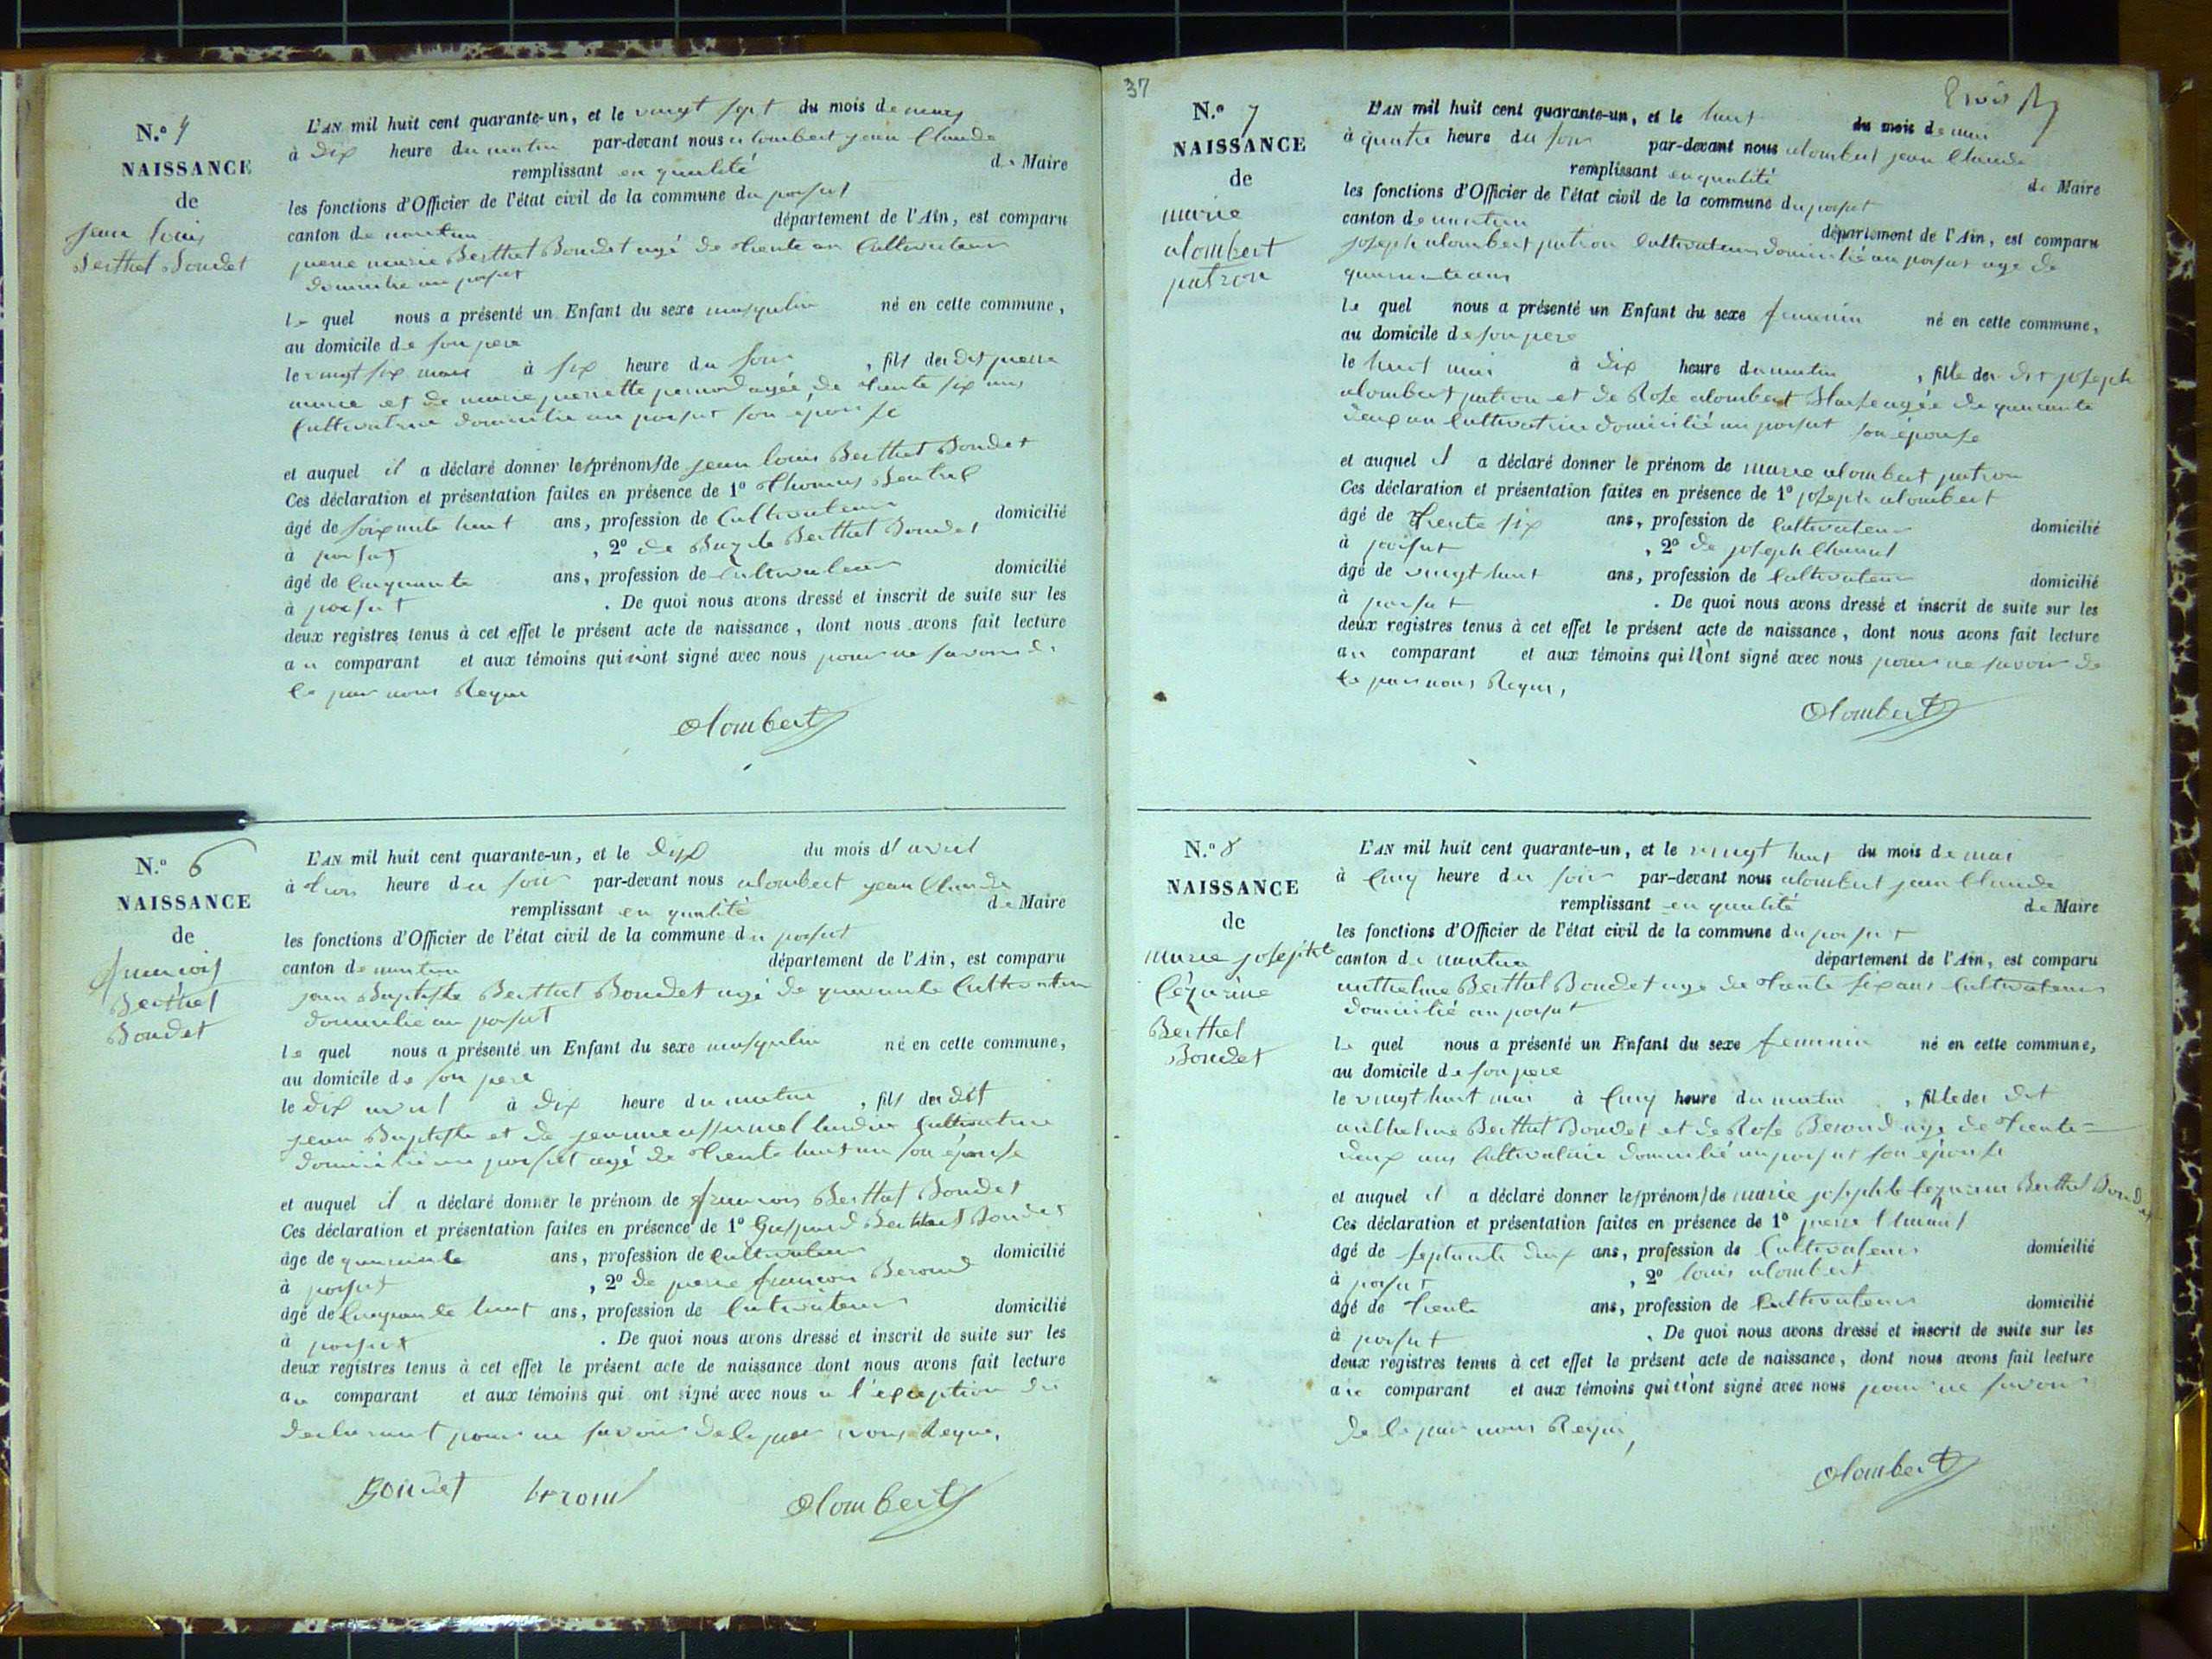 N.º
NAISSANCE
de
jean louis
Berthet Bondet
L'AN mil huit cent quarante-un, et le vingt sept du mois de mars
à dix heure du matin par-devant nous alombert jean Claude
remplissant en qualité de Maire
les fonctions d'Officier de l'état civil de la commune du poisat
canton de nantua département de l'Ain, est comparu
pierre marie Berthet Bondet agé de trente an Cultivateur
domicilie au poisat
le quel nous a présenté un Enfant du sexe masqulin né en cette commune,
au domicile de son pere
le vingt six mars à six heure du soir, fils du dit pierre
marie et de marie pierrette agée de trente six ans
Cultivatrice domicilie au poisat son épouse
et auquel il a déclaré donner les prénoms de jean louis Berthet Bondet
Ces déclaration et présentation faites en présence de 1º Thomas
âgé de soixante huit ans, profession de Cultivateur domicilié
à poisat, 2º de Berthet Bondet
âgé de Cinquante ans, profession de Cultivateur domicilié
à poisat. De quoi nous avons dressé et inscrit de suite sur les
deux registres tenus à cet effet le présent acte de naissance, dont nous avons fait lecture
au comparant et aux témoins qui n'ont signé avec nous pour ne savoir de
ce par nous Requi
alombert
N.º 6
NAISSANCE
de
francois
Berthet
Bondet
L'AN mil huit cent quarante-un, et le dix du mois d'avril
à trois heure du soir par-devant nous alombert jean Claude
remplissant en qualité de Maire
les fonctions d'Officier de l'état civil de la commune du poisat
canton de nantua département de l'Ain, est comparu
jean Baptiste Berthet Bondet agé de quarante Cultivateur
domicilié au poisat
le quel nous a présenté un Enfant du sexe masqulin né en cette commune,
au domicile de son pere
le dix avril à dix heure du matin, fils du dit
jean Baptiste et de jeanne Cultivatrice
domicilié au poisat agé de trente huit an son épouse
et auquel il a déclaré donner le prénom de francois Berthet Bondet
Ces déclaration et présentation faites en présence de 1º Gaspard Berthet Bondet
âgé de quarante ans, profession de Cultivateur domicilié
à poisat, 2º de pierre francois Beroud
âgé de Cinquante huit ans, profession de Cultivateur domicilié
à poisat. De quoi nous avons dressé et inscrit de suite sur les
deux registres tenus à cet effet le présent acte de naissance dont nous avons fait lecture
au comparant et aux témoins qui ont signé avec nous a l'exception du
declarant pour ne savoir de ce par nous Requi,
Bondet beroud alombert
37
N.º 7
NAISSANCE
de
marie
alombert
patron
L'AN mil huit cent quarante-un, et le huit du mois de mai
à quatre heure du soir par-devant nous alombert jean Claude
remplissant en qualité de Maire
les fonctions d'Officier de l'état civil de la commune du poisat
canton de nantua département de l'Ain, est comparu
joseph alombert patron Cultivateur domicilié au poisat age de
quarante ans
le quel nous a présenté un Enfant du sexe feminin né en cette commune,
au domicile de son pere
le huit mai à dix heure du matin, fille du dit joseph
alombert patron et de Rose alombert agée de quarante
deux an Cultivatrice domicilié au poisat son épouse
et auquel il a déclaré donner le prénom de marie alombert patron
Ces déclaration et présentation faites en présence de 1º joseph alombert
âgé de trente six ans, profession de Cultivateur domicilié
à poisat, 2º de joseph
âgé de vingt huit ans, profession de Cultivateur domicilié
à poisat. De quoi nous avons dressé et inscrit de suite sur les
deux registres tenus à cet effet le présent acte de naissance, dont nous avons fait lecture
au comparant et aux témoins qui n'ont signé avec nous pour ne savoir de
ce par nous Requi,
alombert
N.º 8
NAISSANCE
de
marie josephte
Berthet
Bondet
L'AN mil huit cent quarante-un, et le vingt huit du mois de mai
à Cinq heure du soir par-devant nous alombert jean Claude
remplissant en qualité de Maire
les fonctions d'Officier de l'état civil de la commune du poisat
canton de nantua département de l'Ain, est comparu
anthelme Berthet Bondet age de trente six ans Cultivateur
domicilié au poisat
le quel nous a présenté un Enfant du sexe feminin né en cette commune,
au domicile de son pere
le vingt huit mai à Cinq heure du matin, fille du dit
anthelme Berthet Bondet et de Rose Beroud age de trente
deux ans Cultivatrice domicilié au poisat son épouse
et auquel il a déclaré donner les prénoms de marie josephte Berthet Bondet
Ces déclaration et présentation faites en présence de 1º pierre
âgé de septante deux ans, profession de Cultivateur domicilié
à poisat, 2º louis alombert
âgé de trente ans, profession de Cultivateur domicilié
à poisat. De quoi nous avons dressé et inscrit de suite sur les
deux registres tenus à cet effet le présent acte de naissance, dont nous avons fait lecture
au comparant et aux témoins qui n'ont signé avec nous pour ne savoir
de ce par nous Requi,
alombert